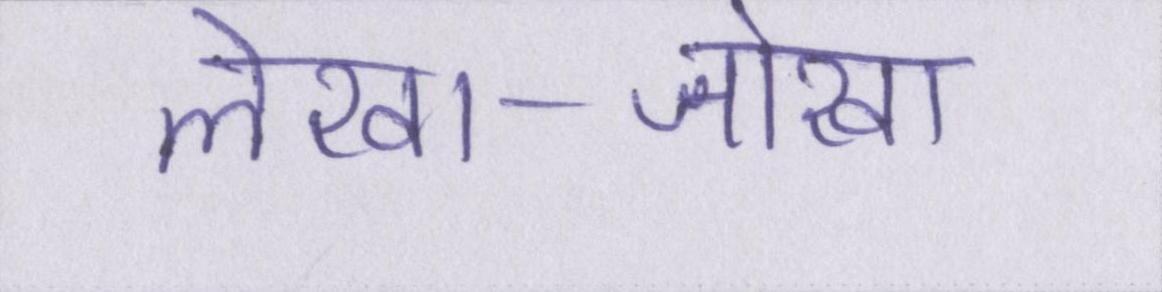 लेखा-जोखा